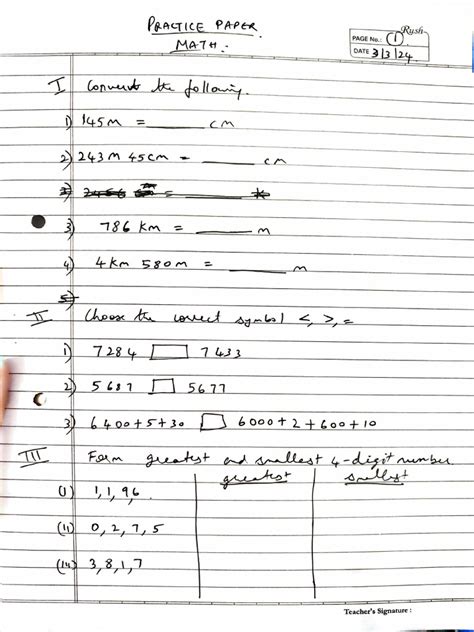 PRACTICE PAPER
MATH.
Rush
PAGE No.: 1
DATE 3/3/24
I Convert the following.
1) 145m = ______ cm
2) 243m 45cm = ______ cm
3) 786 km = ______ m
4) 4km 580m = ______ m
II Choose the correct symbol <, >, =
1) 7284 □ 7433
2) 5687 □ 5677
3) 6400+5+30 □ 6000+2+600+10
III Form greatest and smallest 4-digit number
greatest smallest
(i) 1, 1, 9 6,
(ii) 0, 2, 7, 5
(iii) 3, 8, 1, 7
Teacher's Signature :